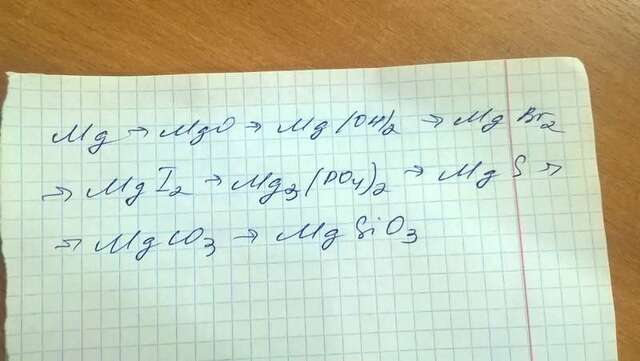 Mg → MgO → Mg(OH)2 → MgBr2
→ MgI2 → Mg3(PO4)2 → MgS →
→ MgCO3 → MgSiO3